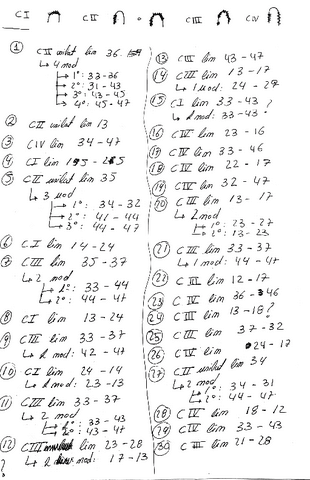 CI CII o CIII CIV
① CII unilat lim 36
↳ 4 mod
↳ 1º: 33-36
↳ 2º: 31-43
↳ 3º: 43-45
↳ 4º: 45-47
② CII unilat lim 13
③ CIV lim 34-47
④ CI lim
⑤ CII unilat lim 35
↳ 3 mod
↳ 1º: 34-32
↳ 2º: 41-44
↳ 3º: 44-47
⑥ CI lim 14-24
⑦ CIII lim 35-37
↳ 2 mod
↳ 1º: 33-44
↳ 2º: 44-47
⑧ CI lim 13-24
⑨ CIII lim 33-37
↳ 1 mod: 42-47
⑩ CI lim 24-14
↳ 1 mod: 23-13
⑪ CIII lim 33-37
↳ 2 mod
↳ 1º: 33-43
↳ 2º: 43-47
⑫ CIII lim 23-28
↳ mod: 17-13
?
⑬ CIII lim 43-47
⑭ CIII lim 13-17
↳ 1 mod: 24-27
⑮ CI lim 33-43 ?
↳ 1 mod: 33-43
⑯ CIV lim 23-16
⑰ CIV lim 33-46
⑱ CIV lim 22-17
⑲ CIV lim 32-47
⑳ CIII lim 13-17
↳ 2 mod
↳ 1º: 23-27
↳ 2º: 13-23
㉑ CIII lim 33-37
↳ 1 mod: 44-47
㉒ CIII lim 12-17
㉓ CIV lim 36-46
㉔ CIII lim 13-18 ?
㉕ CIII lim 37-32
㉖ CIV lim 24-17
㉗ CII unilat lim 34
↳ 2 mod
↳ 1º: 34-31
↳ 2º: 44-47
㉘ CIV lim 18-12
㉙ CIV lim 33-43
㉚ CIII lim 21-28